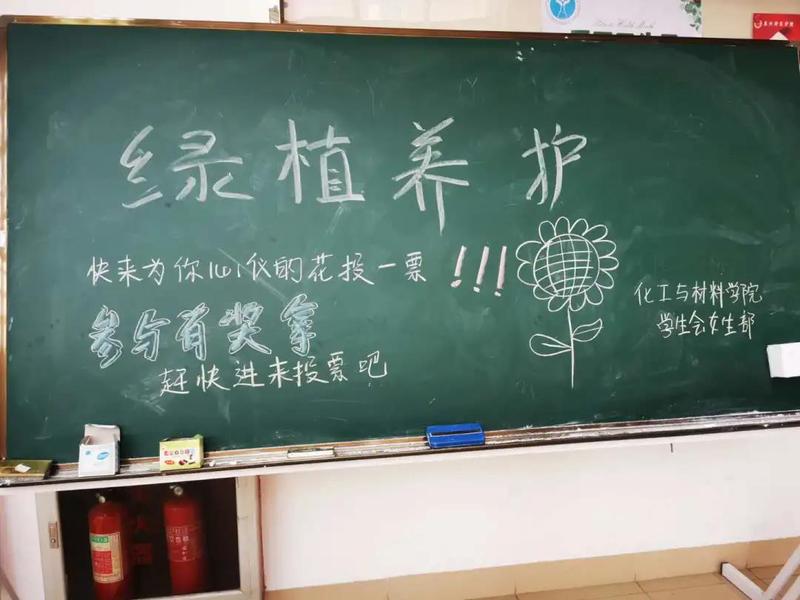 绿植养护
快来为你心仪的花投一票!!!
参与有奖拿
赶快进来投票吧
化工与材料学院
学生会女生部